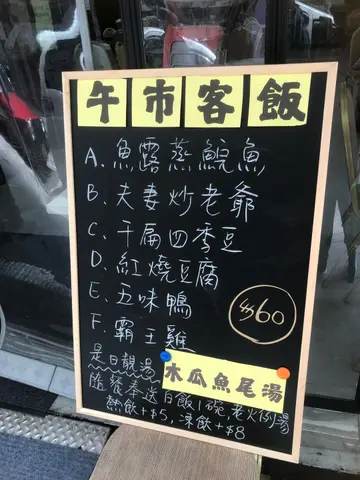 午市客飯
A. 魚露蒸鯇魚
B. 夫妻炒老爺
C. 干扁四季豆
D. 紅燒豆腐
E. 五味鴨
F. 霸王雞
$60
是日靚湯
木瓜魚尾湯
隨餐奉送 白飯1碗 老火例湯
熱飲+$5, 凍飲+$8